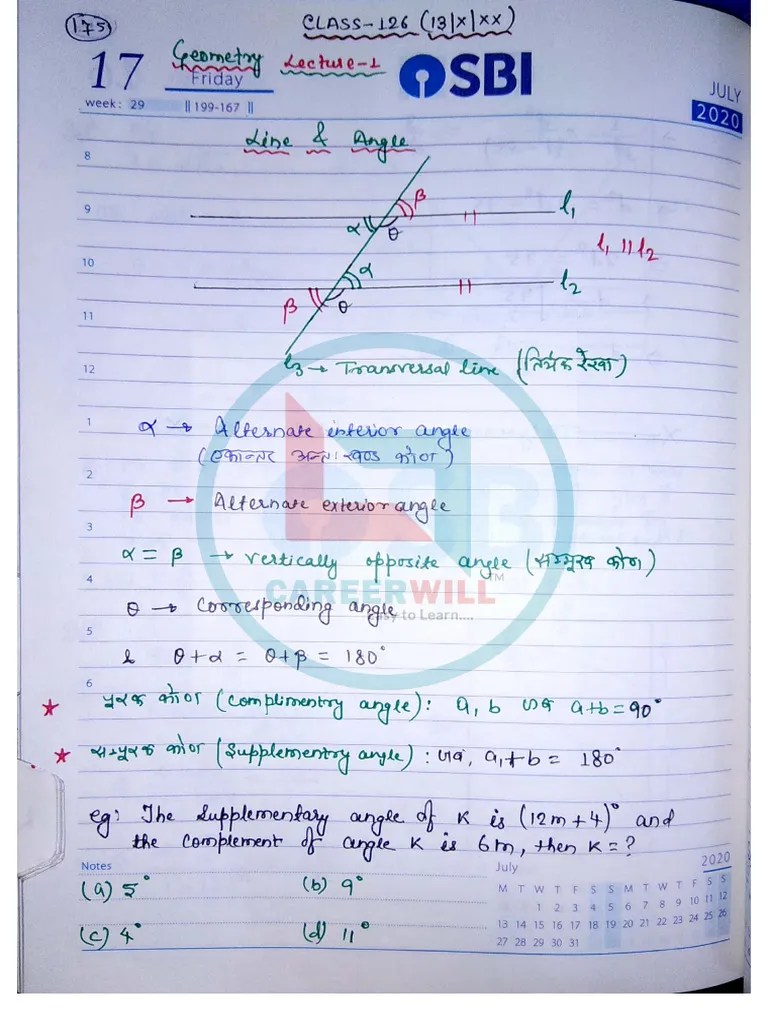 175
CLASS-126 (13|X|XX)
17
Geometry Lecture-1
Friday
SBI
JULY
week: 29
|| 199-167 ||
2020
Line & Angle
8
9
10
11
12
1
2
3
4
5
6
β
l1
α
θ
l1 || l2
α
l2
β
θ
l3 → Transversal line (तिर्यक रेखा)
α → Alternate interior angle
(एकान्तर अन्तः खण्ड कोण)
β → Alternate exterior angle
α = β → vertically opposite angle (सम्मुख कोण)
CAREERWILL™
θ → Corresponding angle
Easy to Learn....
& θ+α = θ+β = 180°
★ पूरक कोण (Complimentry angle): a, b जब a+b = 90°
★ सम्पूरक कोण (Supplementry angle): जब, a+b = 180°
eg: The Supplementary angle of K is (12m+4)° and
the complement of angle K is 6m, then K=?
Notes
(a) 5°
(b) 9°
(c) 4°
(d) 11°
July
2020
M T W T F S S M T W T F S S
1 2 3 4 5 6 7 8 9 10 11 12
13 14 15 16 17 18 19 20 21 22 23 24 25 26
27 28 29 30 31